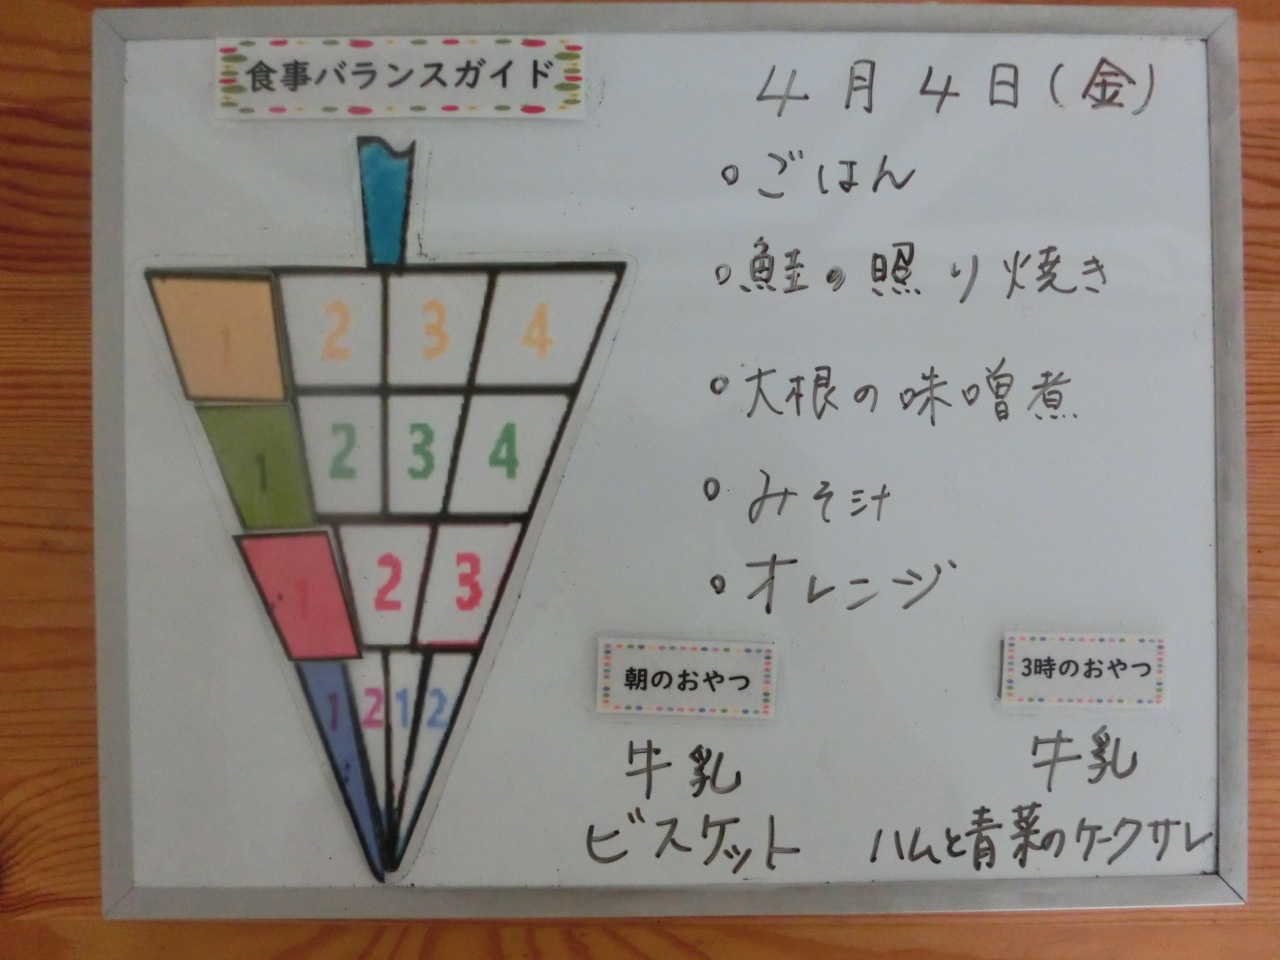 食事バランスガイド
4月4日(金)
。ごはん
。鮭の照り焼き
。大根の味噌煮
。みそ汁
。オレンジ
1 2 3 4
1 2 3 4
1 2 3
1 2 1 2
朝のおやつ
牛乳
ビスケット
3時のおやつ
牛乳
ハムと青菜のケークサレ